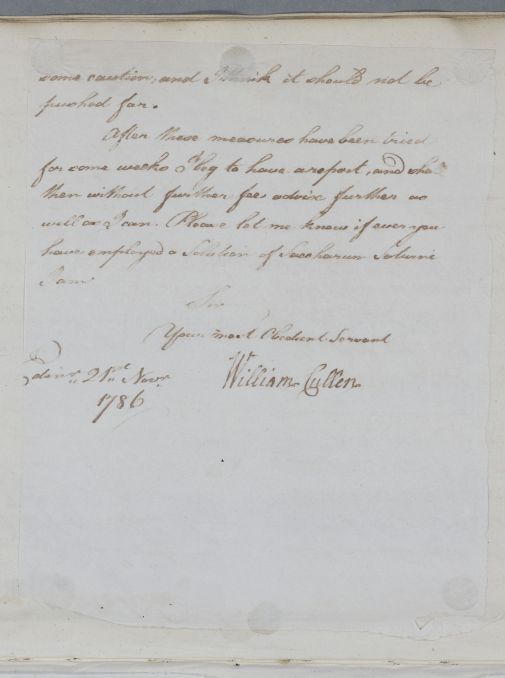 some caution, and I think it should not be
pushed far.
After these measures have been tried
for some weeks I beg to have a report, and shall
then without further fee advise further as
well as I can. Please let me know if ever you
have employed a Solution of Saccharum Saturni
I am
Sir
Your most Obedient Servant
William Cullen
Edinr. 21st Novr.
1786